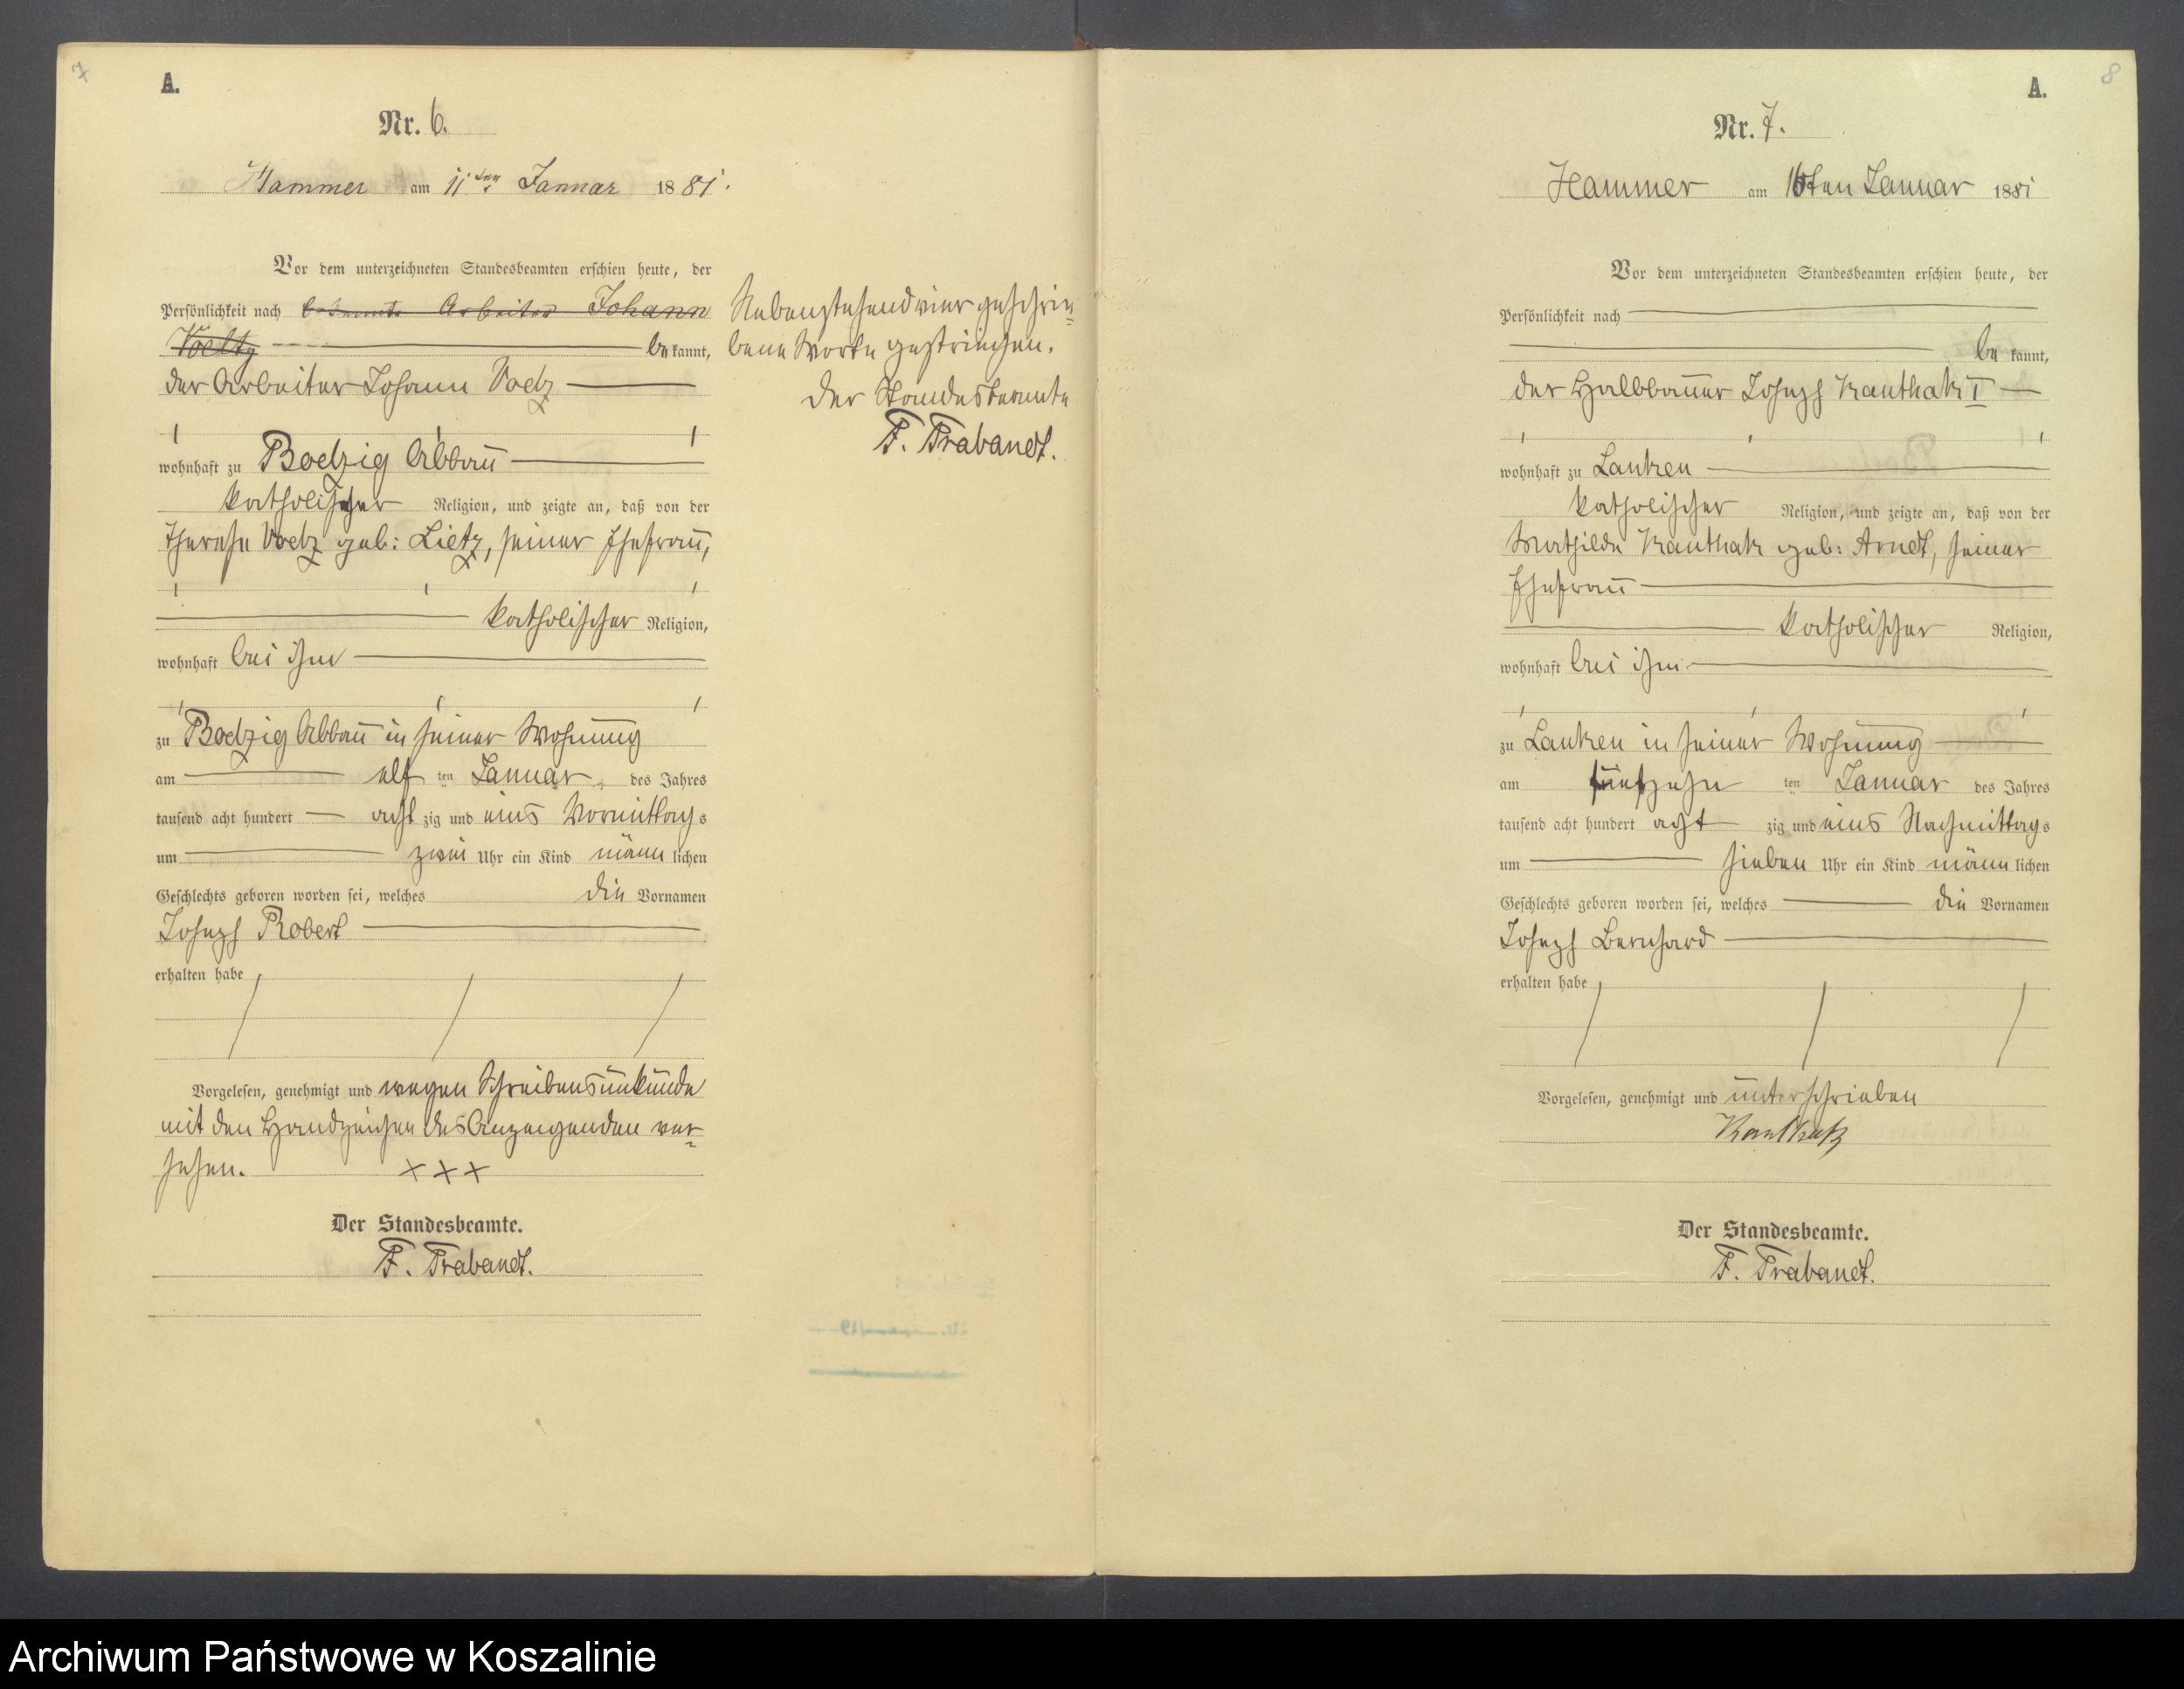 7
A.
Nr. 6.
Hammer am 11ten Januar 1881.
Vor dem unterzeichneten Standesbeamten erschien heute, der
Persönlichkeit nach bekannte Arbeiter Johann
Voeltz be kannt,
der Arbeiter Johann Voelz
wohnhaft zu Boelzig Abbau
katholischer Religion, und zeigte an, daß von der
Therese Voelz geb: Lietz, seiner Ehefrau,
katholischer Religion,
wohnhaft bei ihm
zu Boelzig Abbau in seiner Wohnung
am elf ten Januar des Jahres
tausend acht hundert acht zig und eins Vormittags
um zwei Uhr ein Kind männ lichen
Geschlechts geboren worden sei, welches die Vornamen
Joseph Robert
erhalten habe
Vorgelesen, genehmigt und wegen Schreibensunkunde
mit den Handzeichen des Anzeigenden ver-
sehen. xxx
Der Standesbeamte.
F. Trabandt.
Nebenstehend vier geschrie-
bene Worte gestrichen.
Der Standesbeamte
F. Trabandt.
8
A.
Nr. 7.
Hammer am 16ten Januar 1881
Vor dem unterzeichneten Standesbeamten erschien heute, der
Persönlichkeit nach
be kannt,
der Halbbauer Joseph Kanthak I
wohnhaft zu Lanken
katholischer Religion, und zeigte an, daß von der
Mathilde Kanthak geb: Arndt, seiner
Ehefrau
katholischer Religion,
wohnhaft bei ihm
zu Lanken in seiner Wohnung
am fünfzehn ten Januar des Jahres
tausend acht hundert acht zig und eins Nachmittags
um sieben Uhr ein Kind männ lichen
Geschlechts geboren worden sei, welches die Vornamen
Joseph Bernhard
erhalten habe
Vorgelesen, genehmigt und unterschrieben
Kanthak
Der Standesbeamte.
F. Trabandt.
Archiwum Państwowe w Koszalinie